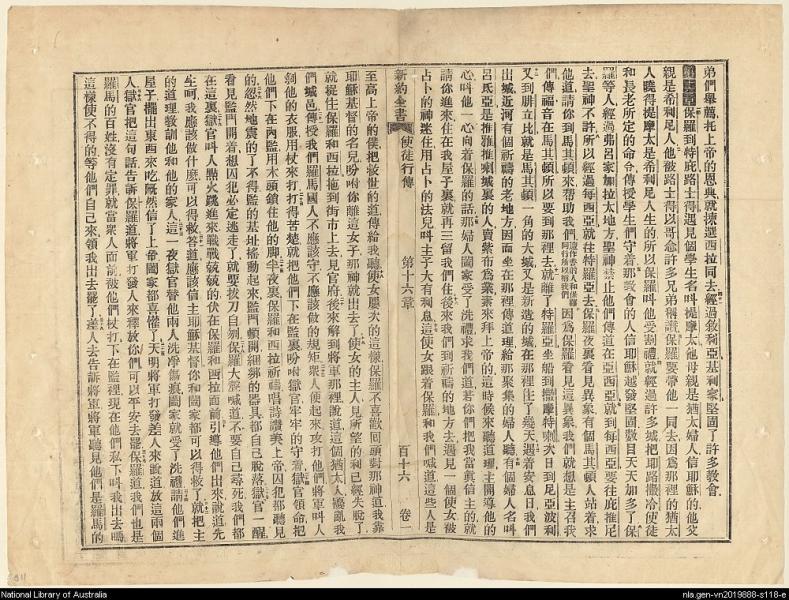 弟們舉薦托上帝的恩典就揀選西拉同去經過敘利亞基利家堅固了許多教會
保羅到特庇路士得遇見個學生名叫提摩太他母親是猶太婦人信耶穌的他父
親是希利尼人他被路士得以哥念許多兄弟稱讚保羅要帶他一同去因為那裡的猶太
人曉得提摩太是希利尼人生的所以保羅叫他受割禮就經過許多城把耶路撒冷使徒
和長老所定的命令傳授學生們守着那教會的人信耶穌越發堅固數目天天加多了保
羅等人經過弗呂家加拉太地方聖神禁止他們傳道在亞西亞就到每西亞要往庇推尼
去聖神不許所以經過每西亞就往特羅亞去保羅夜裏看見異象有個馬其頓人站着求
他道請你到馬其頓來幫助我們因為保羅看見這異象我們就想是主召我
們傳福音在馬其頓所以要到那裡去就離了特羅亞坐船到撒摩特喇次日到尼亞波利
又到腓立比就是馬其頓一角的大城又是新造的城在那裡住了幾天遇着安息日我們
出城近河有個祈禱的老地方因而坐在那裡傳道理給那聚集的婦人聽有個婦人名叫
呂氐亞是推雅推喇城裏的人賣紫布為業素來拜上帝的這時候來聽道理主開導他的
心叫他一心向着保羅的話那婦人闔家受了洗禮求我們道若你們把我當眞信主的就
請你進來住在我屋子裏就再三留我們住後來我們到祈禱的地方去遇見一個使女被
占卜的神迷住用占卜的法兒叫主子大有利息這使女跟着保羅和我們喊道這些人是
新約全書 使徒行傳 第十六章 百十六 卷一
至高上帝的僕把救世的道傳給我聽使女屢次的這樣保羅不喜歡回頭對那神道我靠
耶穌基督的名兒吩咐你離這女子那神就出去了使女的主人見所望的利已經失脫了
就捉住保羅和西拉拖到街市上去見官府後來解到將軍那裡說道這個猶太人擾亂我
們城邑傳授我們羅馬國人不應該守不應該做的規矩衆人便起來攻打他們將軍叫人
剝他的衣服用杖來打打得苦楚就把他們下在監裏吩咐獄官牢牢的守着獄官領命把
他們下在內監用木頭鎖住他的脚半夜裏保羅和西拉祈禱唱詩讚美上帝囚犯都聽見
的忽然地震的了不得監的基址搖動起來監門頓開細綁的器具都自己脫落獄官一醒
看見監門開着想囚犯必定逃走了就要拔刀自刎保羅大聲喊道不要自己尋死我們都
在這裏獄官叫人點火跳進來戰戰兢兢的伏在保羅和西拉面前引導他們出來說道先
生呵我應該做什麼可以得救答道應該信主耶穌基督你和闔家都可以得救了就把主
的道理教訓他和他的家人這一夜獄官替他兩人洗凈傷痕闔家就受了洗禮請他們進
屋子擺出東西來吃旣然信了上帝闔家都喜懽了天明將軍打發差人來說道放這兩個
人獄官把這句話告訴保羅道將軍打發人來釋放你們可以平安去罷保羅道我們也是
羅馬的百姓沒有定罪就當衆人面前被他們杖打下在監裡現在他們私下叫我出去嗎
這樣使不得的等他們自己來領我出去罷了差人去告訴將軍將軍聽見他們是羅馬的
National Library of Australia
nla.gen-vn2019888-s118-e